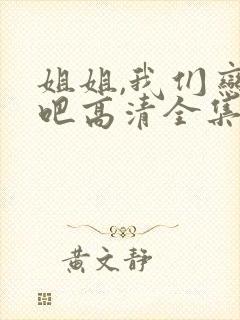 姐姐,我们
吧高清全集
黄文静